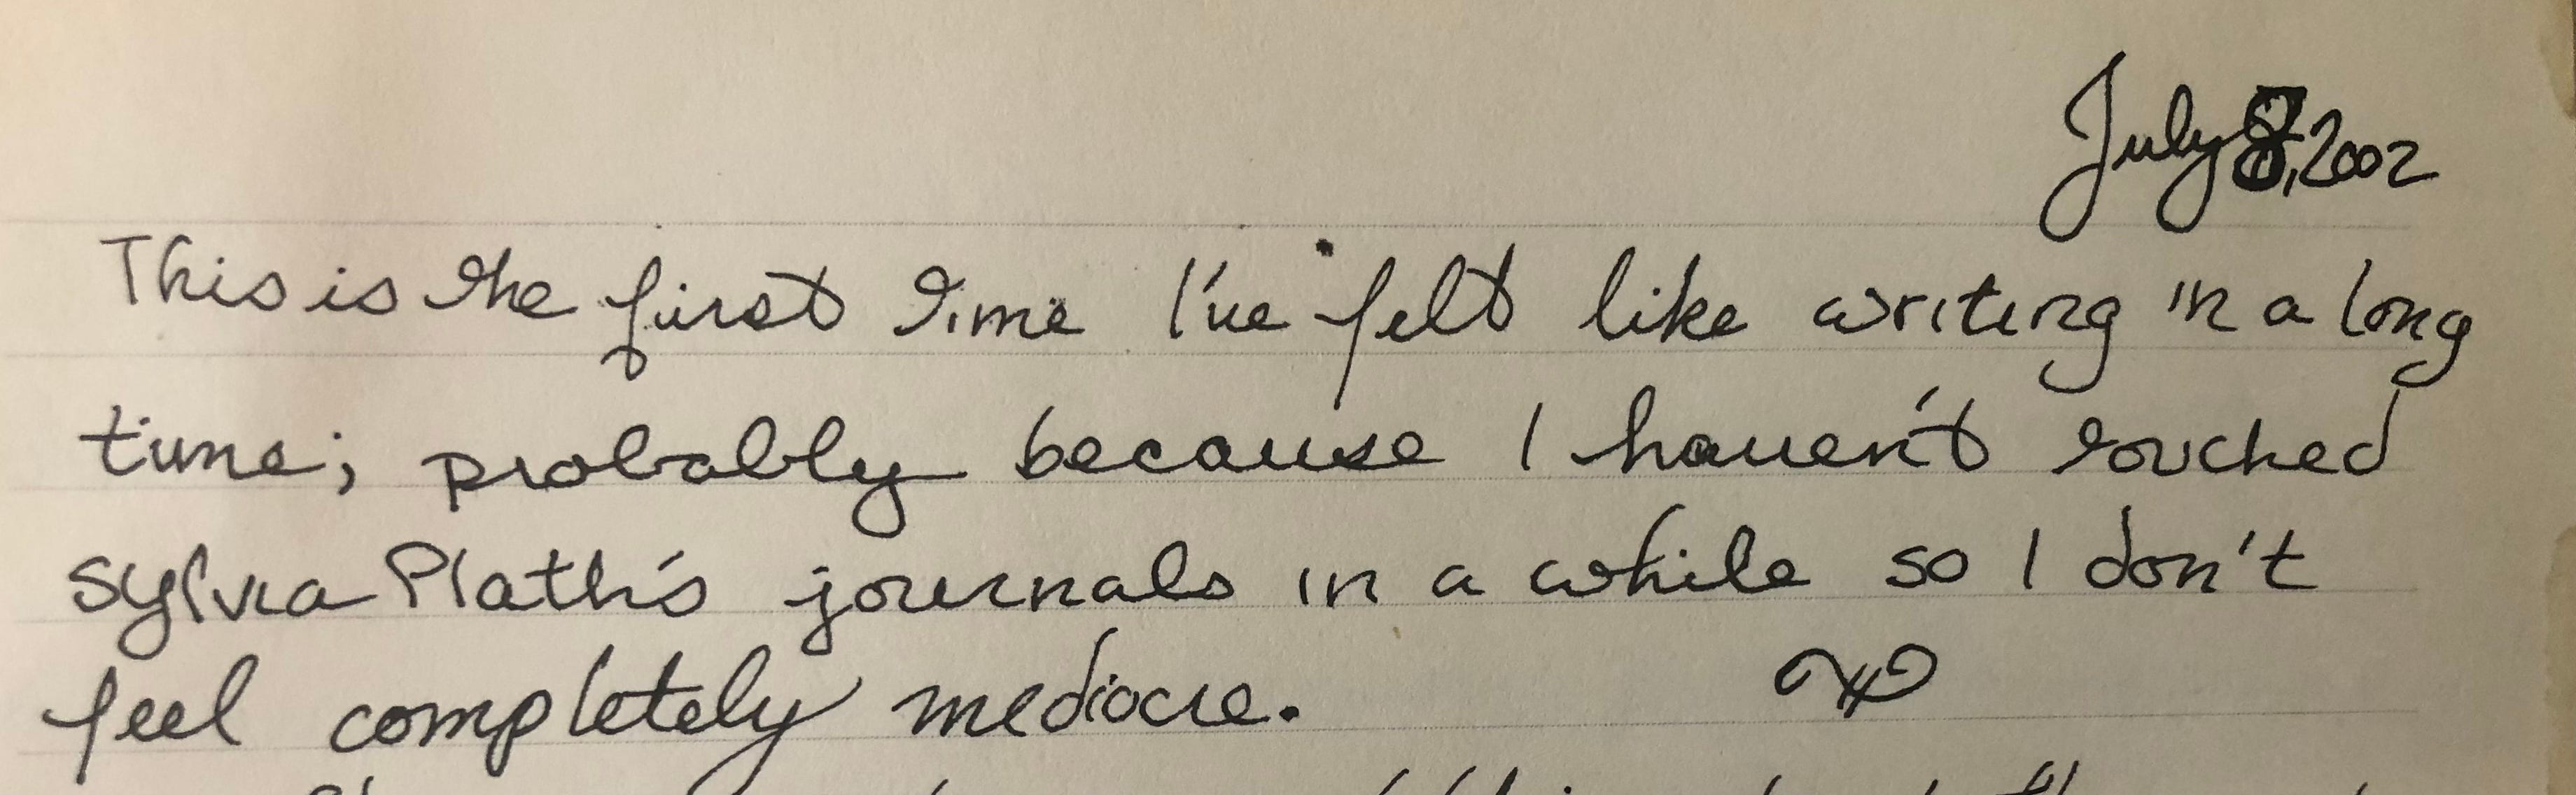 July 8, 2002
This is the first time I've felt like writing in a long
time; probably because I haven't touched
Sylvia Plath's journals in a while so I don't
feel completely mediocre.